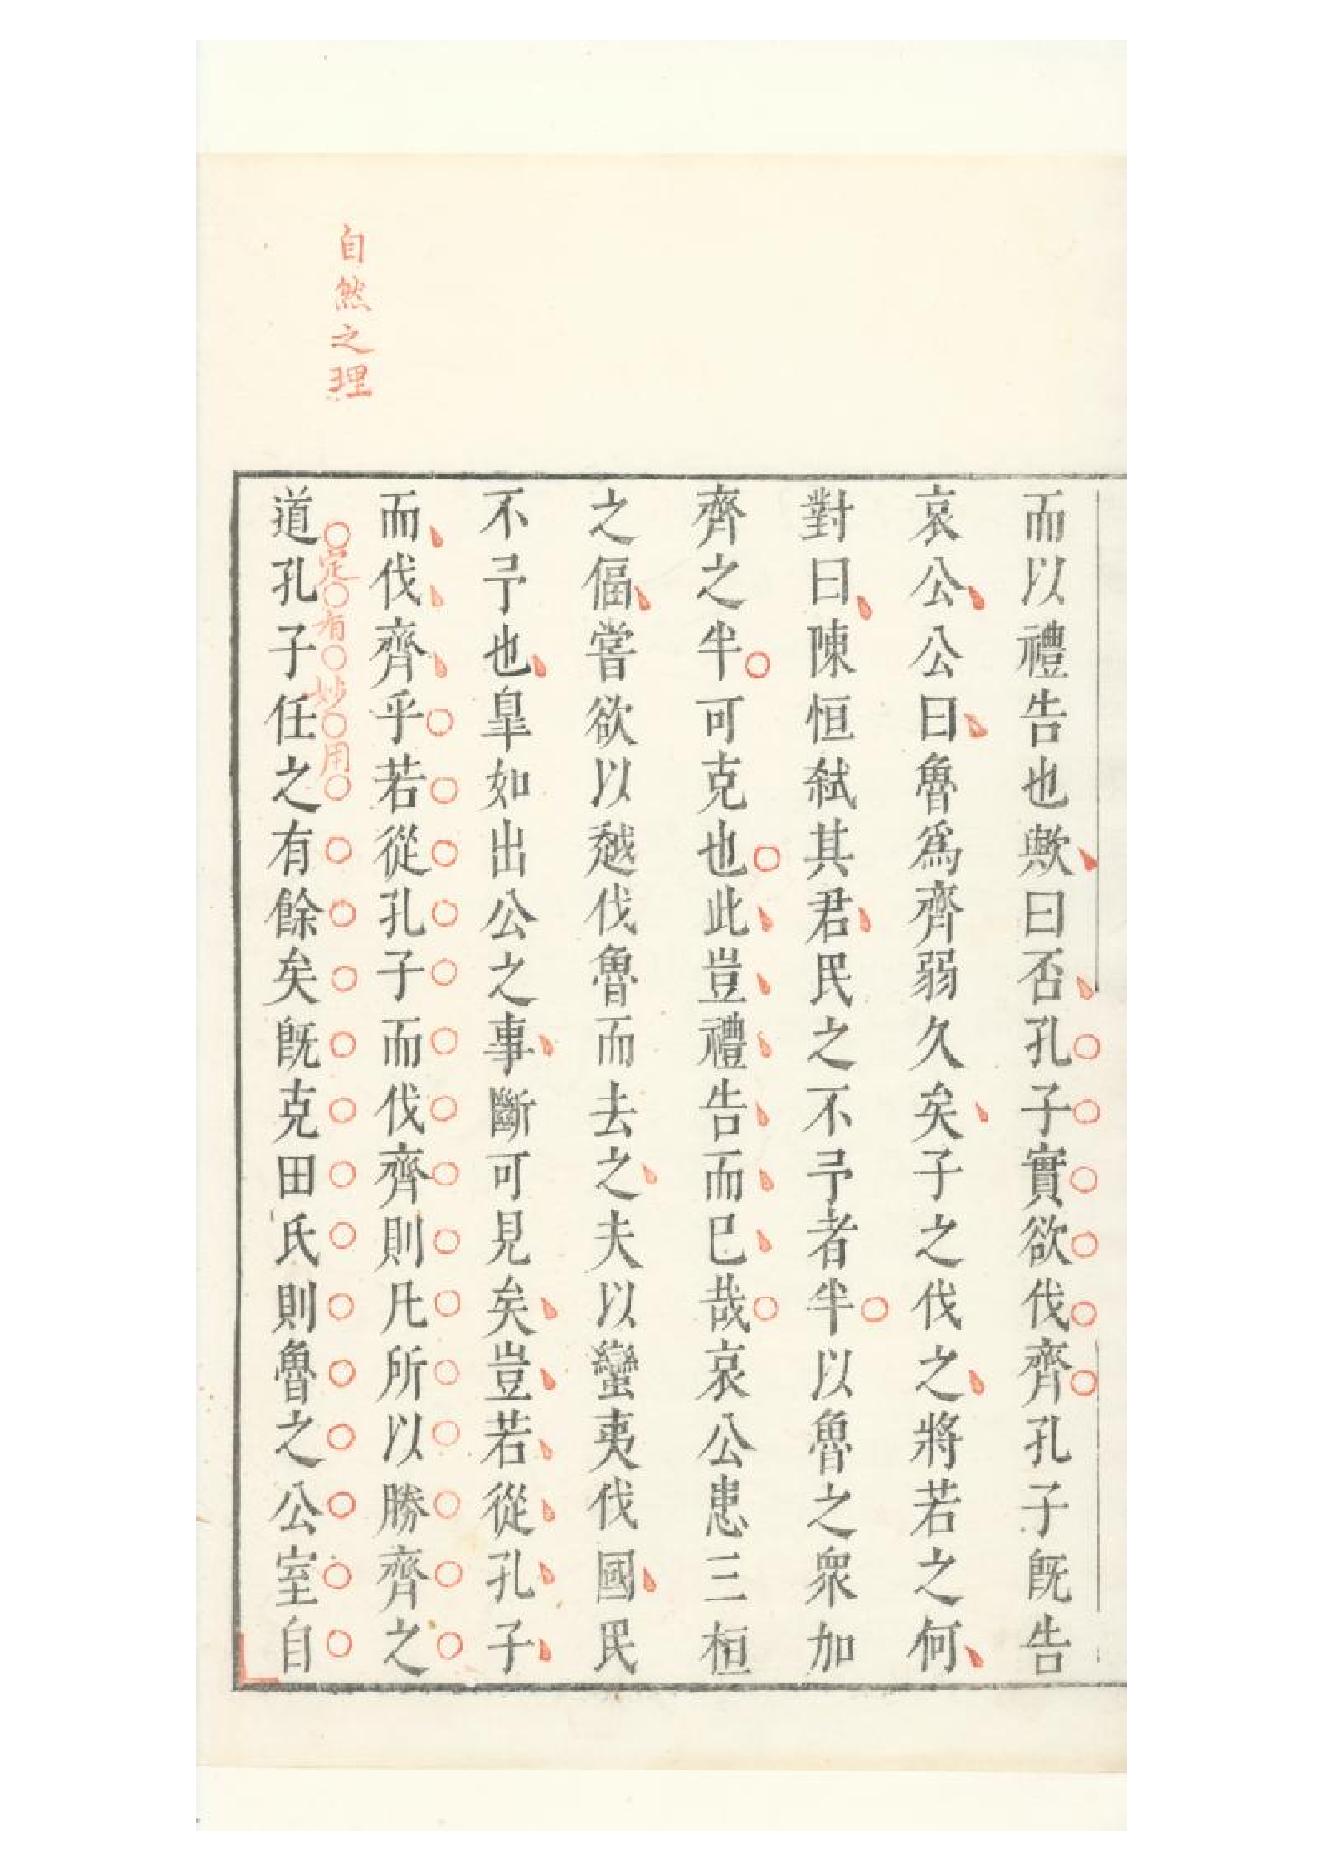 而以禮告也歟曰否孔子實欲伐齊孔子旣告
哀公公曰魯爲齊弱久矣子之伐之將若之何
對曰陳恒弑其君民之不予者半以魯之衆加
齊之半可克也此豈禮告而已哉哀公患三桓
之偪嘗欲以越伐魯而去之夫以蠻夷伐國民
不予也臯如出公之事斷可見矣豈若從孔子
而伐齊乎若從孔子而伐齊則凡所以勝齊之
道孔子任之有餘矣旣克田氏則魯之公室自
自然之理
定有妙用